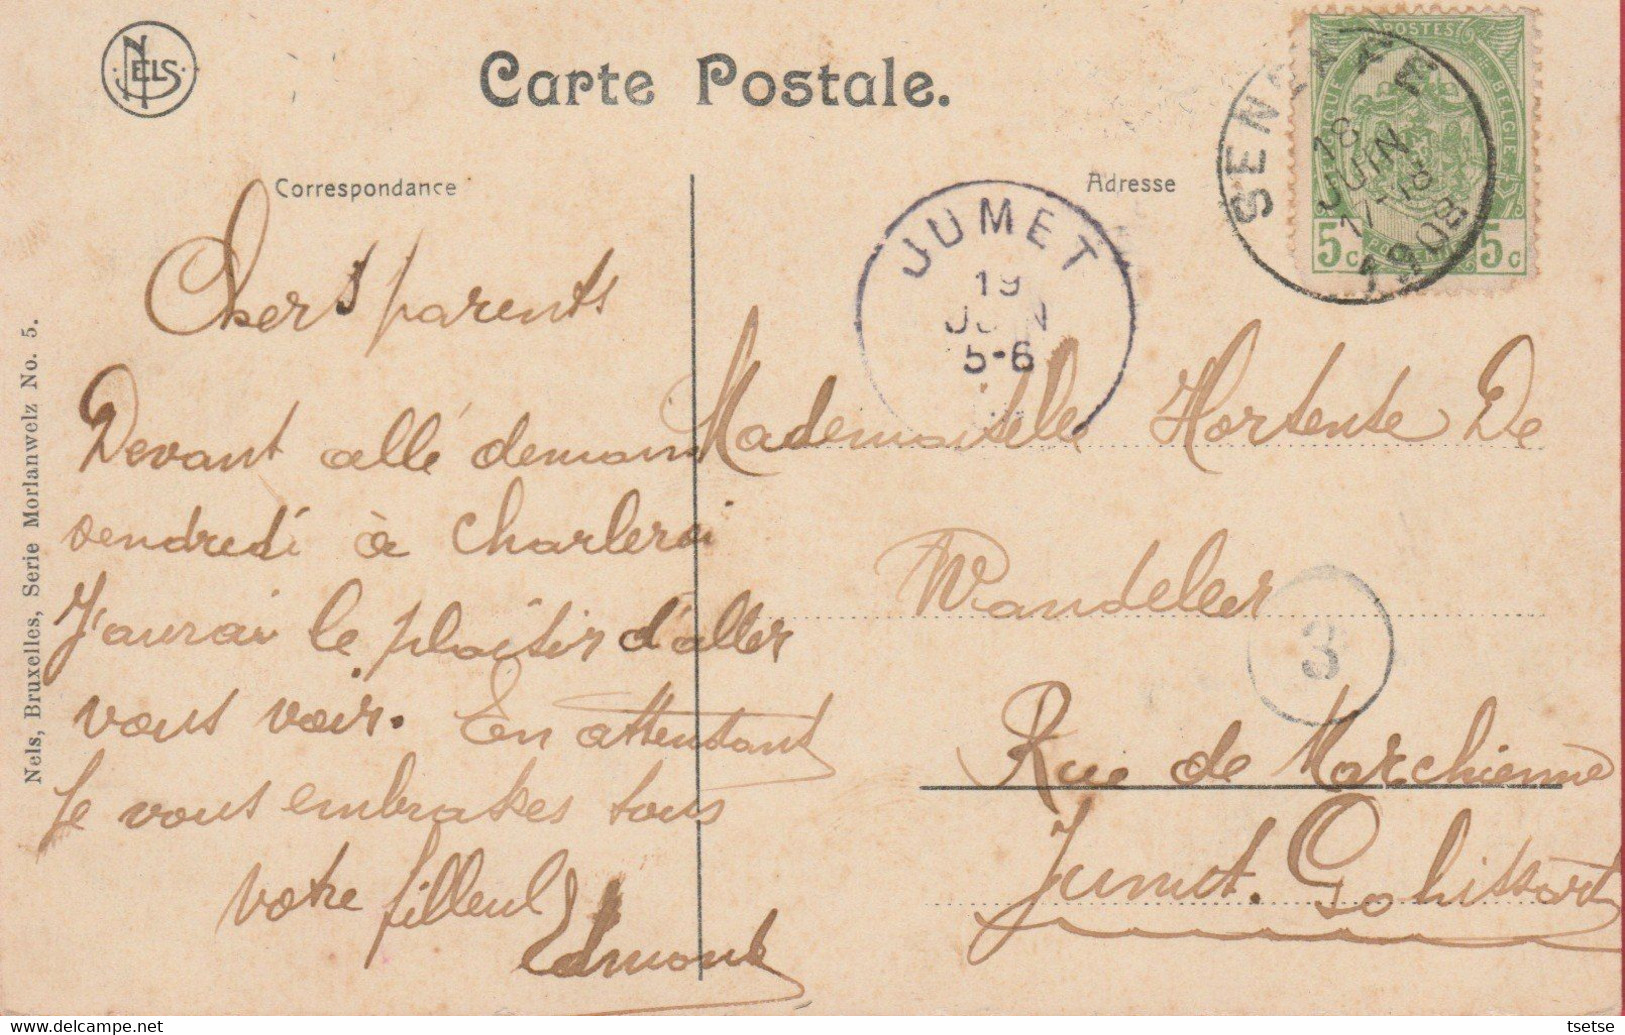 NELS
Carte Postale.
Correspondance
Adresse
POSTES
BELGIQUE
BELGIE
5 c
5 c
18
JUIN
17-18
1908
JUMET
19
JUIN
5-6
3
Chers parents
Devant allé demain
vendredi à Charleroi
J'aurai le plaisir d'aller
vous voir. En attendant
Je vous embrasses tous
votre filleul
Edmond
Mademoiselle Hortense De
Wandeleer
Rue de Marchienne
Jumet. Gohissart
Nels, Bruxelles, Serie Morlanwelz No. 5.
tsetse